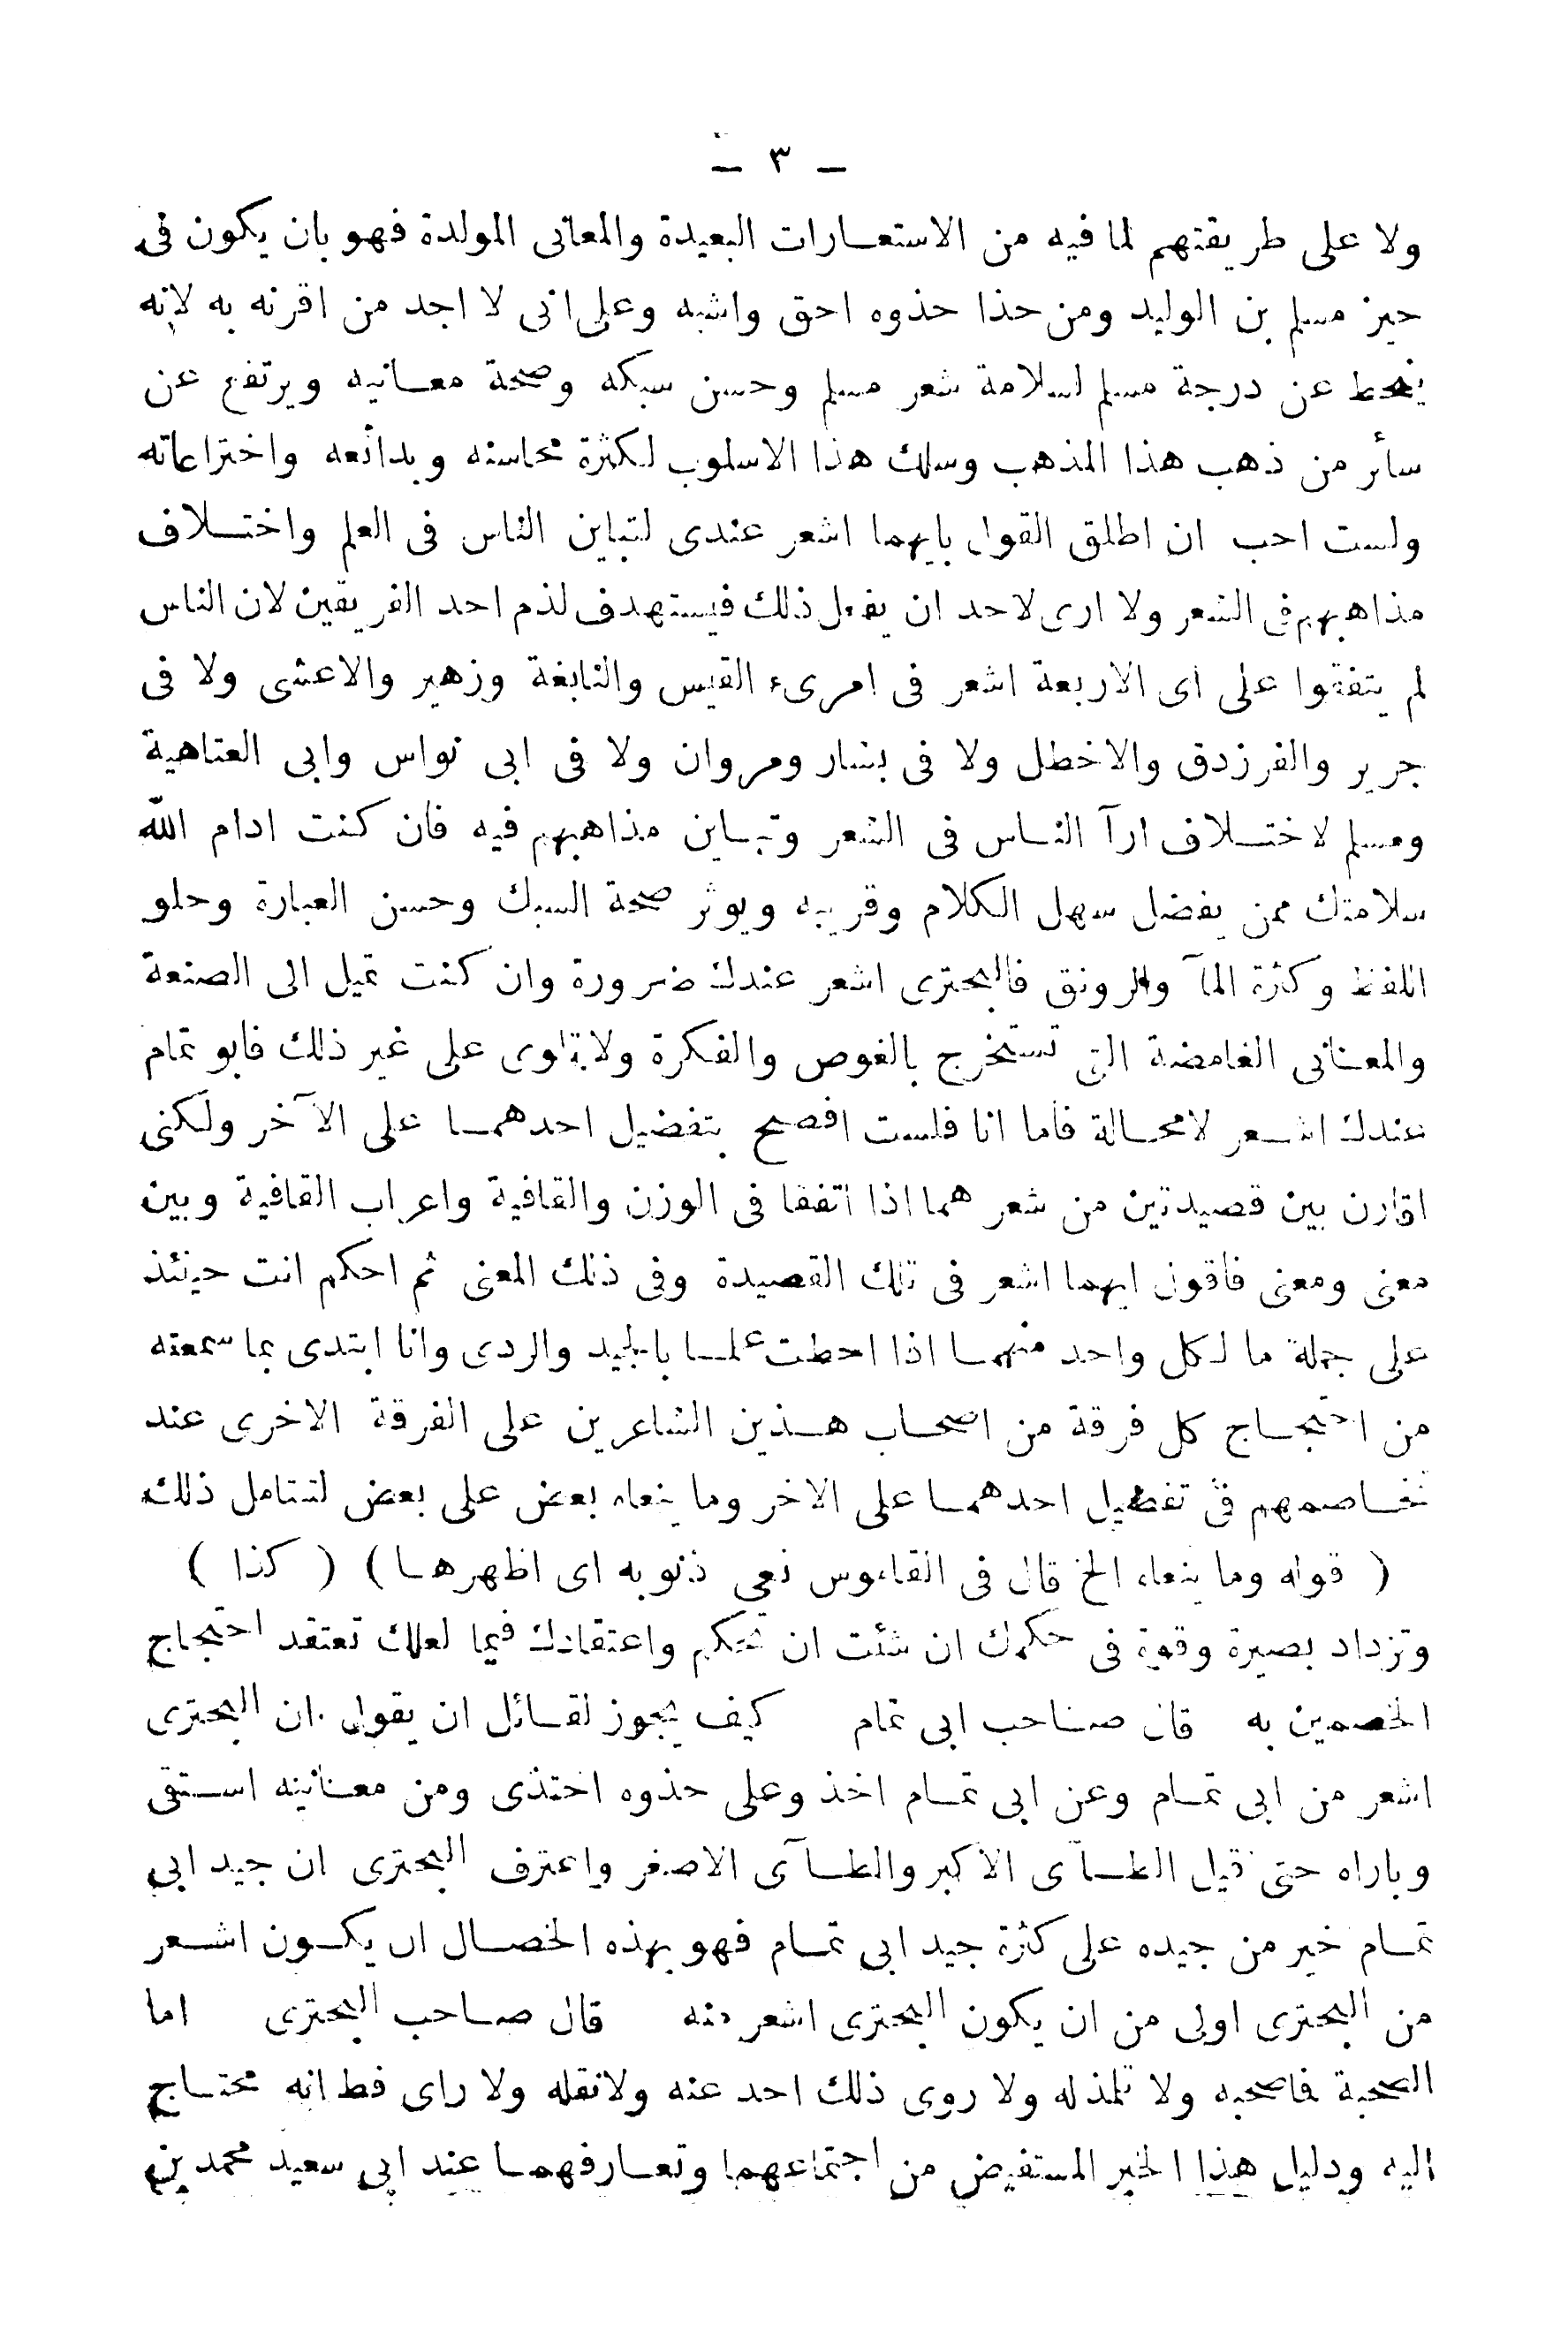 – ٣ –
ولا على طريقتهم لما فيه من الاستعارات البعيدة والمعانى المولدة فهو بان يكون فى
حيز مسلم بن الوليد ومن حذا حذوه احق واشبه وعلى انى لا اجد من اقرنه به لانه
ينحط عن درجة مسلم لسلامة شعر مسلم وحسن سبكه وصحة معانيه ويرتفع عن
سائر من ذهب هذا المذهب وسلك هذا الاسلوب لكثرة محاسنه وبدائعه واختراعاته
ولست احب ان اطلق القول بايهما اشعر عندى لتباين الناس فى العلم واختلاف
مذاهبهم فى الشعر ولا ارى لاحد ان يفعل ذلك فيستهدف لذم احد الفريقين لان الناس
لم يتفقوا على اى الاربعة اشعر فى امرىء القيس والنابغة وزهير والاعشى ولا فى
جرير والفرزدق والاخطل ولا فى بشار ومروان ولا فى ابى نواس وابى العتاهية
ومسلم لاختلاف ارآ الناس فى الشعر وتباين مذاهبهم فيه فان كنت ادام الله
سلامتك ممن يفضل سهل الكلام وقريبه ويوثر صحة السبك وحسن العبارة وحلو
اللفظ وكثرة المآ والرونق فالبحترى اشعر عندك ضرورة وان كنت تميل الى الصنعة
والمعانى الغامضة التى تستخرج بالغوص والفكرة ولا تلوى على غير ذلك فابو تمام
عندك اشعر لامحالة فاما انا فلست افصح بتفضيل احدهما على الآخر ولكنى
اقارن بين قصيدتين من شعر هما اذا اتفقا فى الوزن والقافية واعراب القافية وبين
معنى ومعنى فاقول ايهما اشعر فى تلك القصيدة وفى ذلك المعنى ثم احكم انت حينئذ
على جملة ما لكل واحد منهما اذا احطت علما بالجيد والردى وانا ابتدى بما سمعته
من احتجاج كل فرقة من اصحاب هذين الشاعرين على الفرقة الاخرى عند
تخاصمهم فى تفضيل احدهما على الاخر وما ينعاه بعض على بعض لتتامل ذلك
( قوله وما ينعاه الخ قال فى القاموس نعى ذنوبه اى اظهرها ) ( كذا )
وتزداد بصيرة وقوة فى حكمك ان شئت ان تحكم واعتقادك فيما لعلك تعتقد احتجاج
الخصمين به قال صاحب ابى تمام كيف يجوز لقائل ان يقول ان البحترى
اشعر من ابى تمام وعن ابى تمام اخذ وعلى حذوه احتذى ومن معانيه استقى
وباراه حتى قيل الطآى الاكبر والطآى الاصغر واعترف البحترى ان جيد ابى
تمام خير من جيده على كثرة جيد ابى تمام فهو بهذه الخصال ان يكون اشعر
من البحترى اولى من ان يكون البحترى اشعر منه قال صاحب البحترى اما
الصحبة فاصحبه ولا تلمذ له ولا روى ذلك احد عنه ولا نقله ولا راى قط انه محتاج
اليه ودليل هذا الخبر المستفيض من اجتماعهما وتعارفهما عند ابى سعيد محمد بن